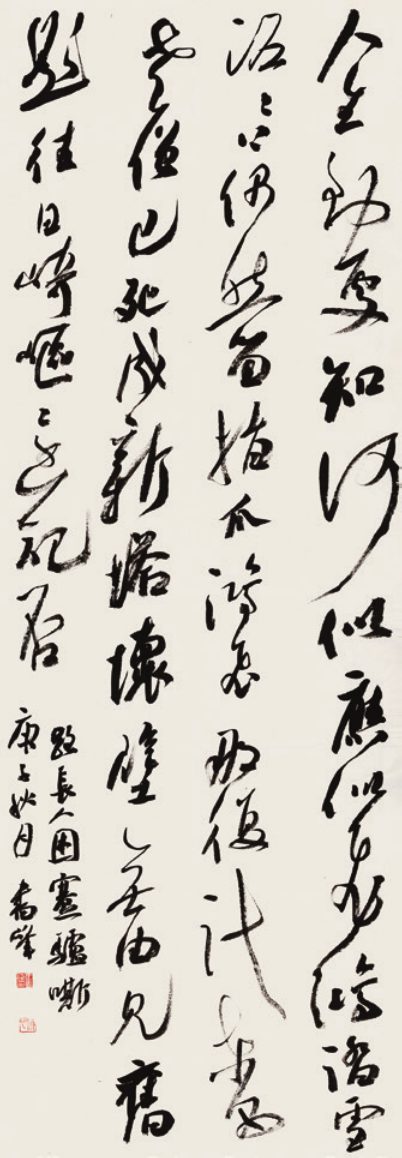 人生到處知何似應似飛鴻踏雪
泥〻上偶然留指爪鴻飛那復計東西
老僧已死成新塔壞壁無由見舊
題往日崎嶇還記否
路長人困蹇驢嘶
庚子秋月